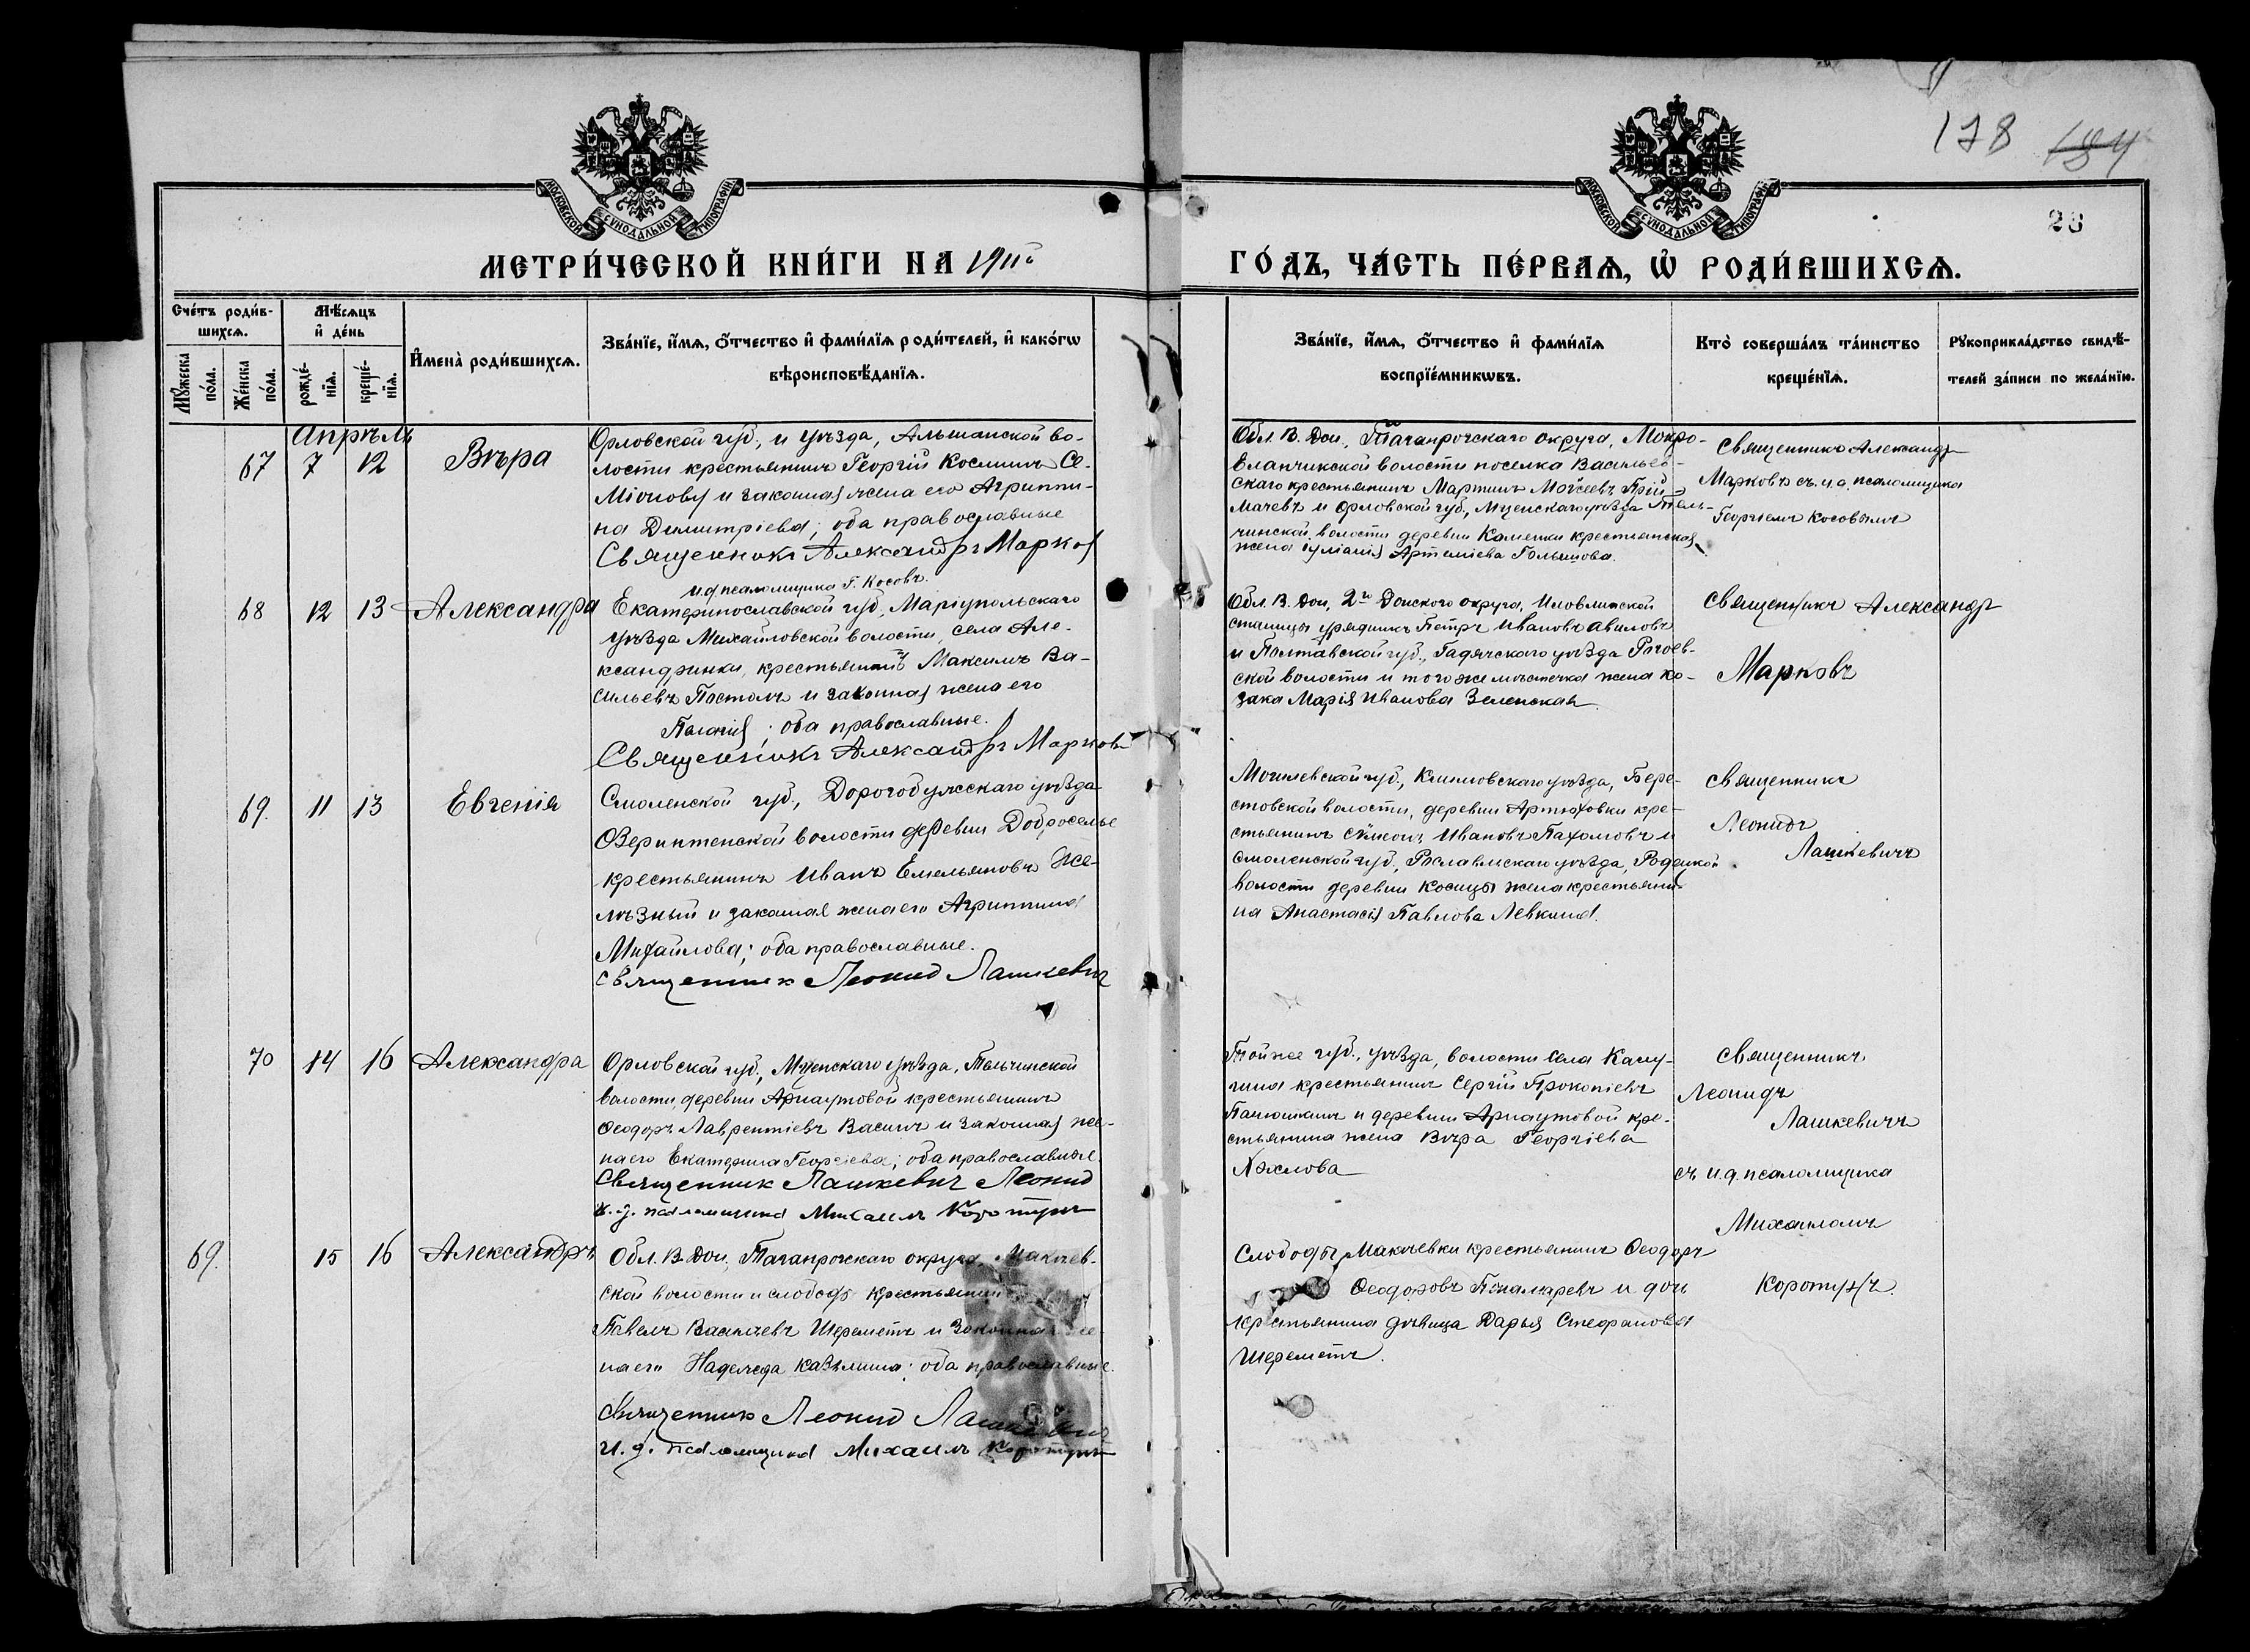 178 184
МОСКОВСКОЙ СѴНОДАЛЬНОЙ ТИПОГРАФІИ.
МОСКОВСКОЙ СѴНОДАЛЬНОЙ ТИПОГРАФІИ.
28
МЕТРИ́ЧЕСКОЙ КНИ́ГИ НА 1911й
ГО́ДЪ, ЧА́СТЬ ПЕ́РВАѦ, Ѡ҆ РОДИ́ВШИХСѦ.
Сче́тъ роди́в-
шихсѧ.
Мѣ́сѧцъ
и҆ де́нь
Мꙋ́жеска
по́ла.
Же́нска
по́ла.
рожде́-
нїѧ.
креще́-
нїѧ.
И҆мена̀ роди́вшихсѧ.
Зва́нїе, и҆́мѧ, ѻ҆́тчество и҆ фами́лїѧ роди́телей, и҆ како́гѡ
вѣроисповѣ́данїѧ.
Зва́нїе, и҆́мѧ, ѻ҆́тчество и҆ фами́лїѧ
воспрїе́мникѡвъ.
Кто̀ соверша́лъ та́инство
креще́нїѧ.
Рꙋкоприкла́дство свидѣ́-
телей за́писи по жела́нїю.
Апрѣль
67 7 12 Вѣра
Орловской губ., и уѣзда, Альшанской во-
лости крестьянинъ Георгій Косминъ Се-
міоновъ и законная жена его Агриппи-
на Димитріева; оба православные
Священникъ Александръ Марков
и.д. псаломщика Г. Косовъ.
Обл. В. Дон., Таганрогскаго округа, Мокро-
Еланчикской волости поселка Васильев-
скаго крестьянинъ Мартинъ Моѵсеевъ Прій-
мачевъ и Орловской губ., Мценскаго уѣзда Тель-
чинской волости деревни Каменки крестьянская
жена Іуліанія Артеміева Гольцова.
Священникъ Александръ
Марковъ съ и.д. псаломщика
Георгіемъ Косовымъ
68 12 13 Александра
Екатеринославской губ., Маріупольскаго
уѣзда Михайловской волости, села Але-
ксандринки, крестьянинъ Максимъ Ва-
сильевъ Постолъ и законная жена его
Пелагія; оба православные.
Священникъ Александръ Марковъ
Обл. В. Дон, 2го Донского округа, Иловлинской
станицы урядникъ Петръ Ивановъ Авиловъ
и Полтавской губ., Гадячскаго уѣзда Рагоев-
ской волости и того же мѣстечка жена ко-
зака Марія Иванова Зеленская.
Священникъ Александръ
Марковъ
69. 11 13 Евгенія
Смоленской губ., Дорогобужскаго уѣзда
Озерищенской волости деревни Доброселье
крестьянинъ Иванъ Емельяновъ Же-
лѣзный и законная жена его Агриппина
Михайлова; оба православные.
Священник Леонид Лашкевич
Могилевской губ., Климовскаго уѣзда, Бере-
стовской волости, деревни Артюховки кре-
стьянинъ Сѵмеонъ Ивановъ Пахомовъ и
Смоленской губ., Рославльскаго уѣзда, Родецкой
волости деревни Косицы жена крестьяни-
на Анастасія Павлова Левкина.
Священникъ
Леонидъ
Лашкевичъ
70 14 16 Александра
Орловской губ., Мценскаго уѣзда, Тельчинской
волости, деревни Арнаутовой крестьянинъ
Ѳеодоръ Лаврентіевъ Васинъ и законная же-
на его Екатерина Георгіева; оба православные.
Священник Лашкевич Леонид
и.д. псаломщика Михаилъ Коротунъ
Той же губ., уѣзда, волости села Калу-
гина крестьянинъ Сергій Прокопіевъ
Панюшкинъ и деревни Арнаутовой кре-
стьянина жена Вѣра Георгіева
Священникъ
Леонидъ
Лашкевичъ
съ и.д. псаломщика
Михаиломъ
Коротун/ъ.
69. 15 16 Александръ
Обл. В. Дон., Таганрогскаго округа, Макеев-
ской волости и слободы крестьянин
Павелъ Васильевъ Шереметъ и законная же-
на его Надежда Казьмина; оба православные.
Священник Леонид Лашкевич
и.д. псаломщика Михаилъ Коротунъ
Слободы Макѣевки крестьянинъ Ѳеодоръ
Ѳеодоровъ Пономаревъ и дочь
крестьянина дѣвица Дарья Стефанова
Шереметъ.